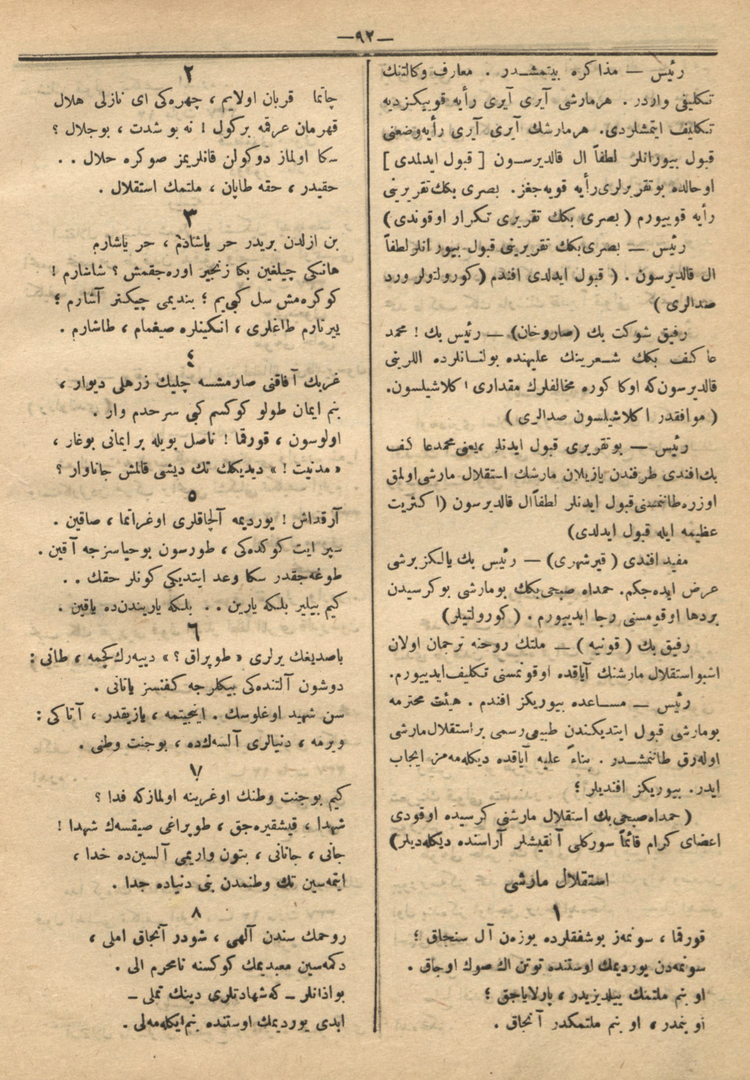 —٩٢—
رئیس — مذاکره بیتمشدر . معارف وکالتنك
تکلیفی واردر . هرمارشی آیری آیری رأیه قویبکزدیه
تکلیف ایتمشلردی. هرمارشك آیری آیری رأیه وضعنی
قبول بیورانلر لطفاً ال قالدیرسون [ قبول ایدلمدی ]
اوحالده بوتقریرلری رأیه قویه‌جغز. بصری بکك تقریرینی
رأیه قوییورم ( بصری بکك تقریری تکرار اوقوندی )
رئیس — بصری بکك تقریرینی قبول بیورانلر لطفاً
ال قالدیرسون . ( قبول ایدلدی افندم ( کورولتولر ورد
صدالری )
رفیق شوکت بك (صاروخان) — رئیس بك ! محمد
عاکف بکك شعرینك علیهنده بولنانلرده اللرینی
قالدیرسون که اوکا کوره مخالفلرك مقداری اکلاشیلسون.
( موافقدر اکلاشیلسون صدالری )
رئیس — بوتقریری قبول ایدنلر ، یعنی محمد عاکف
بك افندی طرفندن یازیلان مارشك استقلال مارشی اولمق
اوزره طاننمسنی قبول ایدنلر لطفاً ال قالدیرسون (اکثریت
عظیمه ایله قبول ایدلدی)
مفید افندی ( قیرشهری ) — رئیس بك یالکز برشی
عرض ایده‌جکم. حمداله صبحی بکك بومارشی بوکرسیدن
بردها اوقومسنی رجا ایدییورم . ( کورولتیلر)
رفیق بك ( قونیه ) — ملتك روحنه ترجمان اولان
اشبو استقلال مارشنك آیاقده اوقونمسنی تکلیف ایدییورم.
رئیس — مساعده بیوریکز افندم . هیئت محترمه
بومارشی قبول ایتدیکندن طبیعی رسمی بر استقلال مارشی
اوله‌رق طانتمشدر . بناءً علیه آیاقده دیکله‌مه‌مز ایجاب
ایدر. بیوریکز افندیلر ؛
( حمداله صبحی بك استقلال مارشنی کرسیده اوقودی
اعضای کرام قائماً سورکلی آلقیشلر آراسنده دیکله‌دیلر)
استقلال مارشی
١
قورقما ، سونمز بوشفقلرده یوزن آل سنجاق ؛
سونمه‌دن یوردیمك اوستنده توتن اك صوك اوجاق .
او بنم ملتمك ییلدیزیدر ، پارلایاجق ؛
او بنمدر ، او بنم ملتمکدر آنجاق .
٢
چاتما قربان اولایم ، چهره‌کی ای نازلی هلال
قهرمان عرقمه برکول ! نه بو شدت ، بوجلال ؟
سکا اولماز دوکولن قانلریمز صوکره حلال . .
حقیدر ، حقه طاپان ، ملتمك استقلال .
٣
بن ازلدن بریدر حر یاشادم ، حر یاشارم
هانکی چیلغین بکا زنجیر اوره‌جقمش ؟ شاشارم !
کوکره‌مش سل کبی‌یم ؛ بندیمی چیکنر آشارم ؛
ییرتارم طاغلری ، انکینلره صیغمام ، طاشارم .
٤
غربك آفاقنی صارمشسه چلیك زرهلی دیوار ،
بنم ایمان طولو کوکسم کبی سرحدم وار .
اولوسون ، قورقما ! ناصل بویله بر ایمانی بوغار ،
« مدنیت ! » دیدیکك تك دیشی قالمش جاناوار ؟
٥
آرقداش ! یوردیمه آلچاقلری اوغراتما ، صاقین .
سپر ایت کوکده‌کی ، طورسون بوحیاسزجه آقین .
طوغه‌جقدر سکا وعد ایتدیکی کونلر حقك . .
کیم بیلیر بلکه یارین . . بلکه یاریندن‌ده یاقین .
٦
باصدیغك یرلری « طوپراق ؟ » دییه‌رك کچمه ، طانی :
دوشون آلتنده‌کی بیکلرجه کفنسز یاتانی .
سن شهید اوغلوسك . اینجیتمه ، یازیقدر ، آتاکی :
ویرمه ، دنیالری آلسه‌ك‌ده ، بوجنت وطنی .
٧
کیم بوجنت وطنك اوغرینه اولمازکه فدا ؟
شهدا ، فیشقیره‌جق ، طوپراغی صیقسه‌ك شهدا !
جانی ، جانانی ، بتون واریمی آلسین‌ده خدا ،
ایتمه‌سین تك وطنمدن بنی دنیاده جدا .
٨
روحمك سندن آلهی ، شودر آنجاق املی ،
دکمه‌سین معبدیمك کوکسنه نامحرم الی .
بواذانلر — که شهادتلری دینك تملی —
ابدی یوردیمك اوستنده بنم ایکله‌مه‌لی .